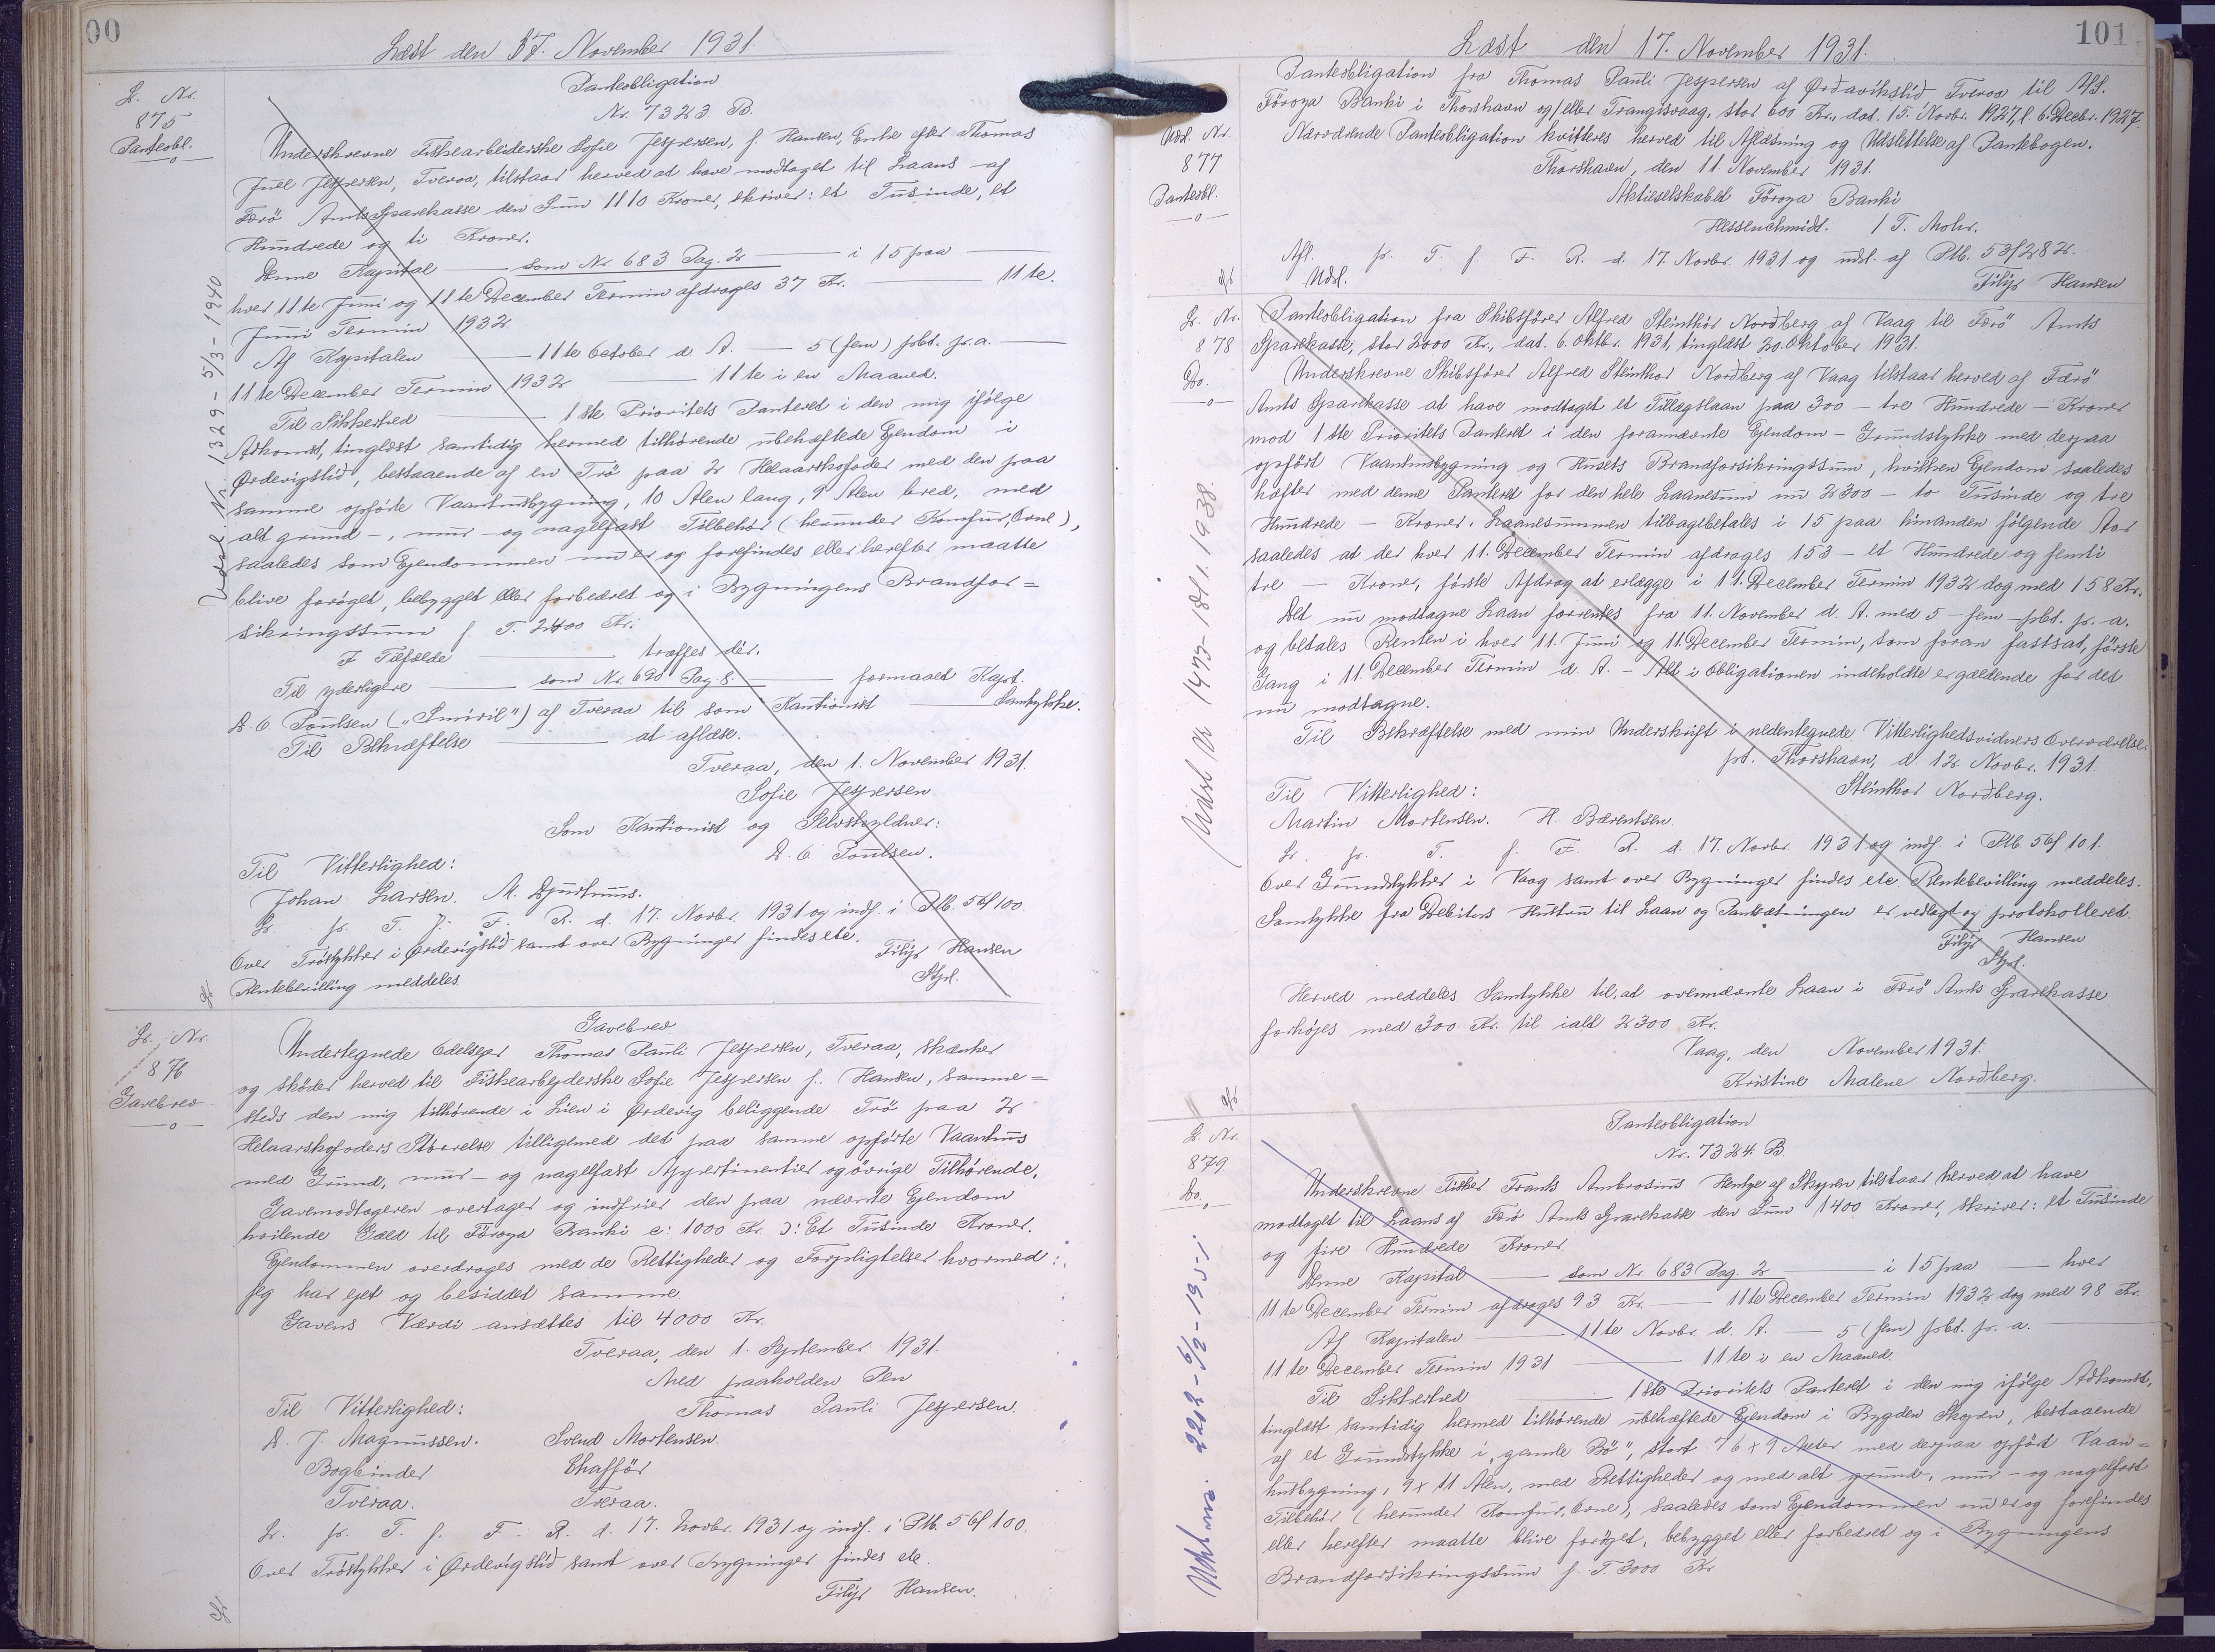 00
Læst den 17. November 1931.
L. Nr.
875
Panteobl.
Panteobligation
Nr. 7323 B.
Underskrevne Fiskearbeiderske Sofie Jespersen, f. Hansen, Enke efter Thomas
Juel Jespersen, Tveraa, tilstaar herved at have modtaget til Laans af
Færö Amts Sparekasse den Sum 1110 Kroner, skriver: et Tusinde, et
Hundrede og ti Kroner.
Denne Kapital — som Nr. 683 Pag. 2 — i 15 paa —
hver 11te Juni og 11te December Termin afdrages 37 Kr. — 11te.
Juni Termin 1932.
Af Kapitalen — 11te October d. A. — 5 (fem) pCt. p. a. —
11te December Termin 1932 — 11te i en Maaned.
Til Sikkerhed — 1ste Prioritets Panteret i den mig ifølge
Adkomst, tinglæst samtidig hermed tilhørende ubehæftede Ejendom i
Ørdevigslid, bestaaende af en Trö paa 2 Helaarskofoder med den paa
samme opførte Vaanhusbygning, 10 Alen lang, 9 Alen bred, med
alt grund-, mur- og nagelfast Tilbehör (herunder Komfur, Ovne),
saaledes som Ejendommen nu er og forefindes eller herefter maatte
blive forøget, bebygget eller forbedret og i Bygningens Brandfor=
sikringssum f. T. 2400 Kr.
I Tilfælde — træffes dér.
Til yderligere — som Nr. 698 Pag. 8. — formaaet Kapt.
D. C. Poulsen ("Smiril") af Tveraa til som Kautionist — Samtykke.
Til Bekræftelse — at aflæse.
Tveraa, den 1. November 1931.
Sofie Jespersen
Som Kautionist og Selvskyldner:
D. C. Poulsen.
Til Vitterlighed:
Johan Larsen. M. Djurhuus.
L. p. T. f. F. R. d. 17. Novbr. 1931 og indf. i Ptb. 56/100
Over Tröstykker i Ørdevigslid samt over Bygninger findes etc.
Rentebevilling meddeles
Filip Hansen
Stpl.
Udsl. Nr. 1329 - 5/3 - 1940
L. Nr.
876
Gavebrev
Gavebrev
Undertegnede Odelsejer Thomas Pauli Jespersen, Tveraa, skænker
og skøder herved til Fiskearbejderske Sofie Jespersen f. Hansen, samme=
steds den mig tilhørende i Lien i Ørdevig beliggende Trö paa 2
Helaarskofoders Størrelse tilligemed det paa samme opførte Vaanhus
med Grund, mur- og nagelfast Appertinentier og övrige Tilhörende.
Gavemodtageren overtager og indfrier den paa nævnte Ejendom
hvilende Gæld til Föroya Banki c: 1000 Kr. ɔ: Et Tusinde Kroner.
Ejendommen overdrages med de Rettigheder og Forpligtelser hvormed
jeg har ejet og besiddet samme
Gavens Værdi ansættes til 4000 Kr.
Tveraa, den 1. September 1931.
Med paaholden Pen
Thomas Pauli Jespersen.
Til Vitterlighed:
D. J. Magnussen. Svend Mortensen.
Bogbinder Chafför
Tveraa. Tveraa.
L. p. T. f. F. R. d. 17. Novbr. 1931 og indf. i Ptb. 56/100.
Over Tröstykker i Ørdevigslid samt over Bygninger findes etc.
Filip Hansen.
101
Læst den 17. November 1931.
Panteobligation fra Thomas Pauli Jespersen af Ørdavikslid Tveraa til A/S.
Föroya Banki i Thorshavn og/eller Trangisvaag, stor 600 Kr., dat. 15. Novbr. 1927, l. 6. Decbr. 1927.
Udsl. Nr.
877
Panteobl.
Nærværende Panteobligation kvitteres herved til Aflæsning og Udslettelse af Pantebogen.
Thorshavn, den 11 November 1931.
Aktieselskabet Föroya Banki
Hessenschmidt. / T. Mohr.
Afl. p. T. f. F. R. d. 17. Novbr. 1931 og udsl. af Ptb. 53/282.
Udsl.
Filip Hansen
L. Nr.
878
Do.
Panteobligation fra Skibsfører Alfred Steinthor Nordberg af Vaag til Færö Amts
Sparekasse, stor 2000 Kr., dat. 6. Oktbr. 1931, tinglæst 20. Oktober 1931.
Underskrevne Skibsfører Alfred Steinthor Nordberg af Vaag tilstaar herved af Færö
Amts Sparekasse at have modtaget et Tillægslaan paa 300 — tre Hundrede — Kroner
mod 1ste Prioritets Panteret i den forannævnte Ejendom - Grundstykke med derpaa
opført Vaanhusbygning og Husets Brandforsikringssum, hvilken Ejendom saaledes
hæfter med denne Panteret for den hele Laanesum nu 2300 — to Tusinde og tre
Hundrede — Kroner. Laanesummen tilbagebetales i 15 paa hinanden følgende Aar
saaledes at der hver 11. December Termin afdrages 153 — et Hundrede og femti
tre — Kroner, første Afdrag at erlægge i 11. December Termin 1932 dog med 158 Kr.
Det nu modtagne Laan forrentes fra 11. November d. A. med 5 — fem — pCt. p. a.
og betales Renten i hver 11. Juni og 11. December Termin, som foran fastsat, første
Gang i 11. December Termin d. A. — Alt i Obligationen indeholdte er gældende for det
nu modtagne.
Til Bekræftelse med min Underskrift i nedentegnede Vitterlighedsvidners Overværelse.
pt. Thorshavn, d. 12. Novbr. 1931.
Steinthor Nordberg.
Til Vitterlighed:
Martin Mortensen. H. Bærentsen.
L. p. T. f. F. R. d. 17. Novbr. 1931 og indf. i Ptb 56/101.
Over Grundstykker i Vaag samt over Bygninger findes etc. Rentebevilling meddeles.
Samtykke fra Debitors Hustru til Laan og Pantsætningen er vedlagt og protokolleret.
Filip Hansen
Stpl.
Herved meddeles Samtykke til, at ovennævnte Laan i Færö Amts Sparekasse
forhøjes med 300 Kr. til ialt 2300 Kr.
Vaag, den November 1931.
Kristine Malene Nordberg.
Udsl Nr 1473 - 18/1. 1938.
L. Nr.
879
Do.
Panteobligation
Nr. 7324 B.
Underskrevne Fisker Frants Ambrosius Hentze af Skopen tilstaar herved at have
modtaget til Laans af Færö Amts Sparekasse den Sum 1400 Kroner, skriver: et Tusinde
og fire Hundrede Kroner
Denne Kapital — som Nr. 683 Pag. 2 — i 15 paa — hver
11te December Termin afdrages 93 Kr. — 11te December Termin 1932 dog med 98 Kr.
Af Kapitalen — 11te Novbr. d. A. — 5 (fem) pCt. p. a. —
11te December Termin 1931 — 11te i en Maaned.
Til Sikkerhed — 1ste Prioritets Panteret i den mig ifølge Adkomst,
tinglæst samtidig hermed tilhørende ubehæftede Ejendom i Bygden Skopen, bestaaende
af et Grundstykke i "gamle Bö", stort 76 x 9 Meter med derpaa opført Vaan=
husbygning, 9 x 11 Alen, med Rettigheder og med alt grund-, mur- og nagelfast
Tilbehör (herunder Komfur, Ovne), saaledes som Ejendommen nu er og forefindes
eller herefter maatte blive forøget, bebygget eller forbedret og i Bygningens
Brandforsikringssum f. T. 3000 Kr.
2202 - 6/2 - 1951